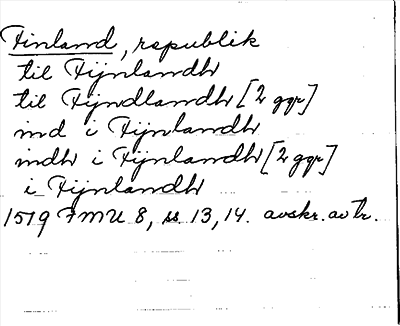 Finland, republik
til Fijnlandh
til Fijndlandh [2 ggr]
ind i Fijnlandh
indh i Fijnlandh [2 ggr]
i Fijnlandh
1519 FMU 8, ss. 13, 14. avskr. av tr.